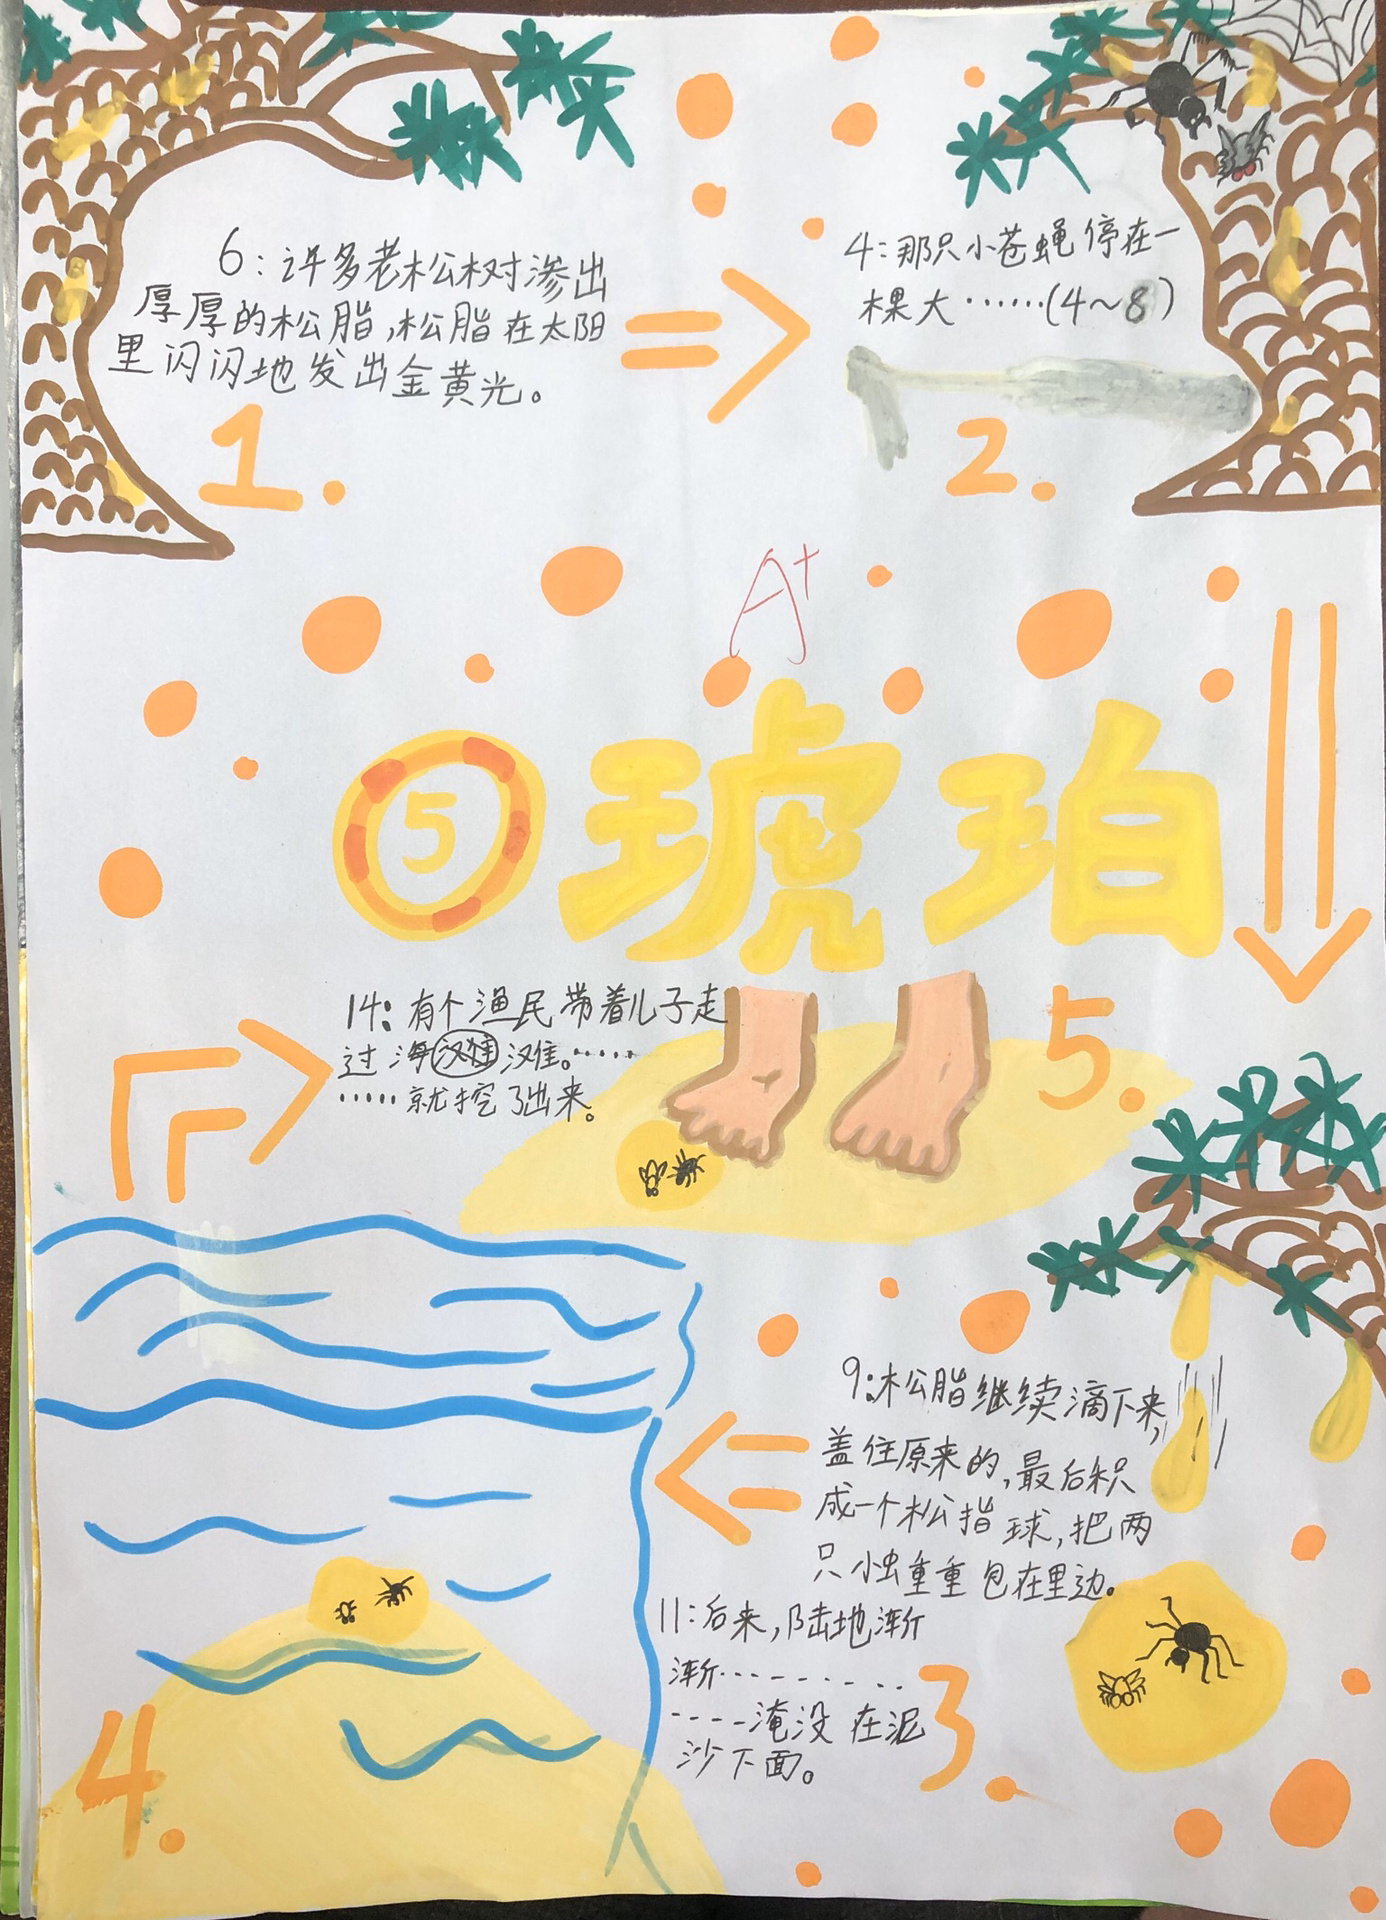 6:许多老松树渗出
厚厚的松脂,松脂在太阳
里闪闪地发出金黄光。
1.
4:那只小苍蝇停在一
棵大……(4~8)
2.
A+
⑤琥珀
14:有个渔民带着儿子走
过海滩。……
……就挖了出来。
5.
9:松脂继续滴下来,
盖住原来的,最后积
成一个松指球,把两
只小虫重重包在里边。
11:后来,陆地渐
渐---------
----淹没在泥
沙下面。
3.
4.